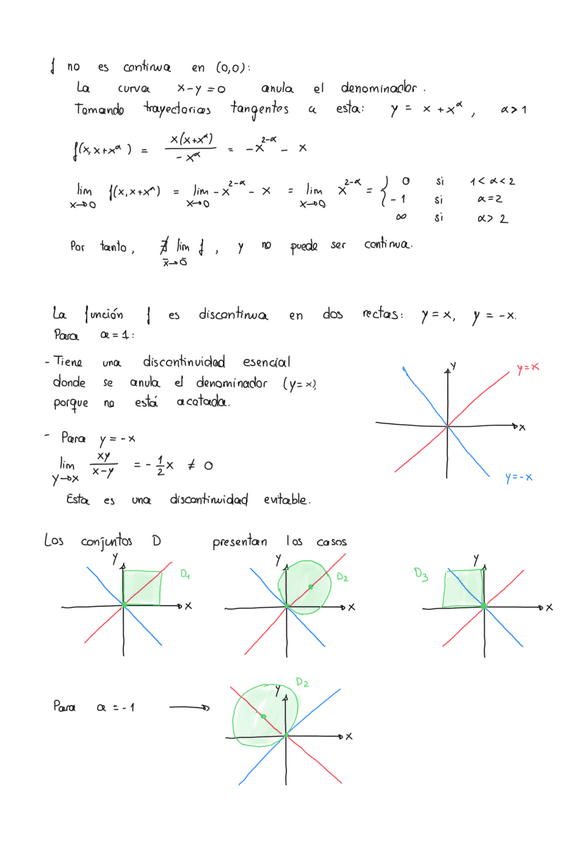 f no es continua en (0,0):
La curva x-y=0 anula el denominador.
Tomando trayectorias tangentes a esta: y = x + x^α, α>1
f(x,x+x^α) = x(x+x^α) / -x^α = -x^(2-α) - x
lim x→0 f(x,x+x^α) = lim x→0 -x^(2-α) - x = lim x→0 x^(2-α) = { 0 si 1<α<2
-1 si α=2
∞ si α>2
Por tanto, ∄ lim x̄→0̄ f, y no puede ser continua.
La función f es discontinua en dos rectas: y=x, y=-x.
Para α=1:
- Tiene una discontinuidad esencial
donde se anula el denominador (y=x)
porque no está acotada.
y
y=x
x
y=-x
- Para y=-x
lim y→x xy / x-y = -1/2 x ≠ 0
Esta es una discontinuidad evitable.
Los conjuntos D presentan los casos
y D₁ x
y D₂ x
D₃ y x
Para α=-1 →
y D₂ x